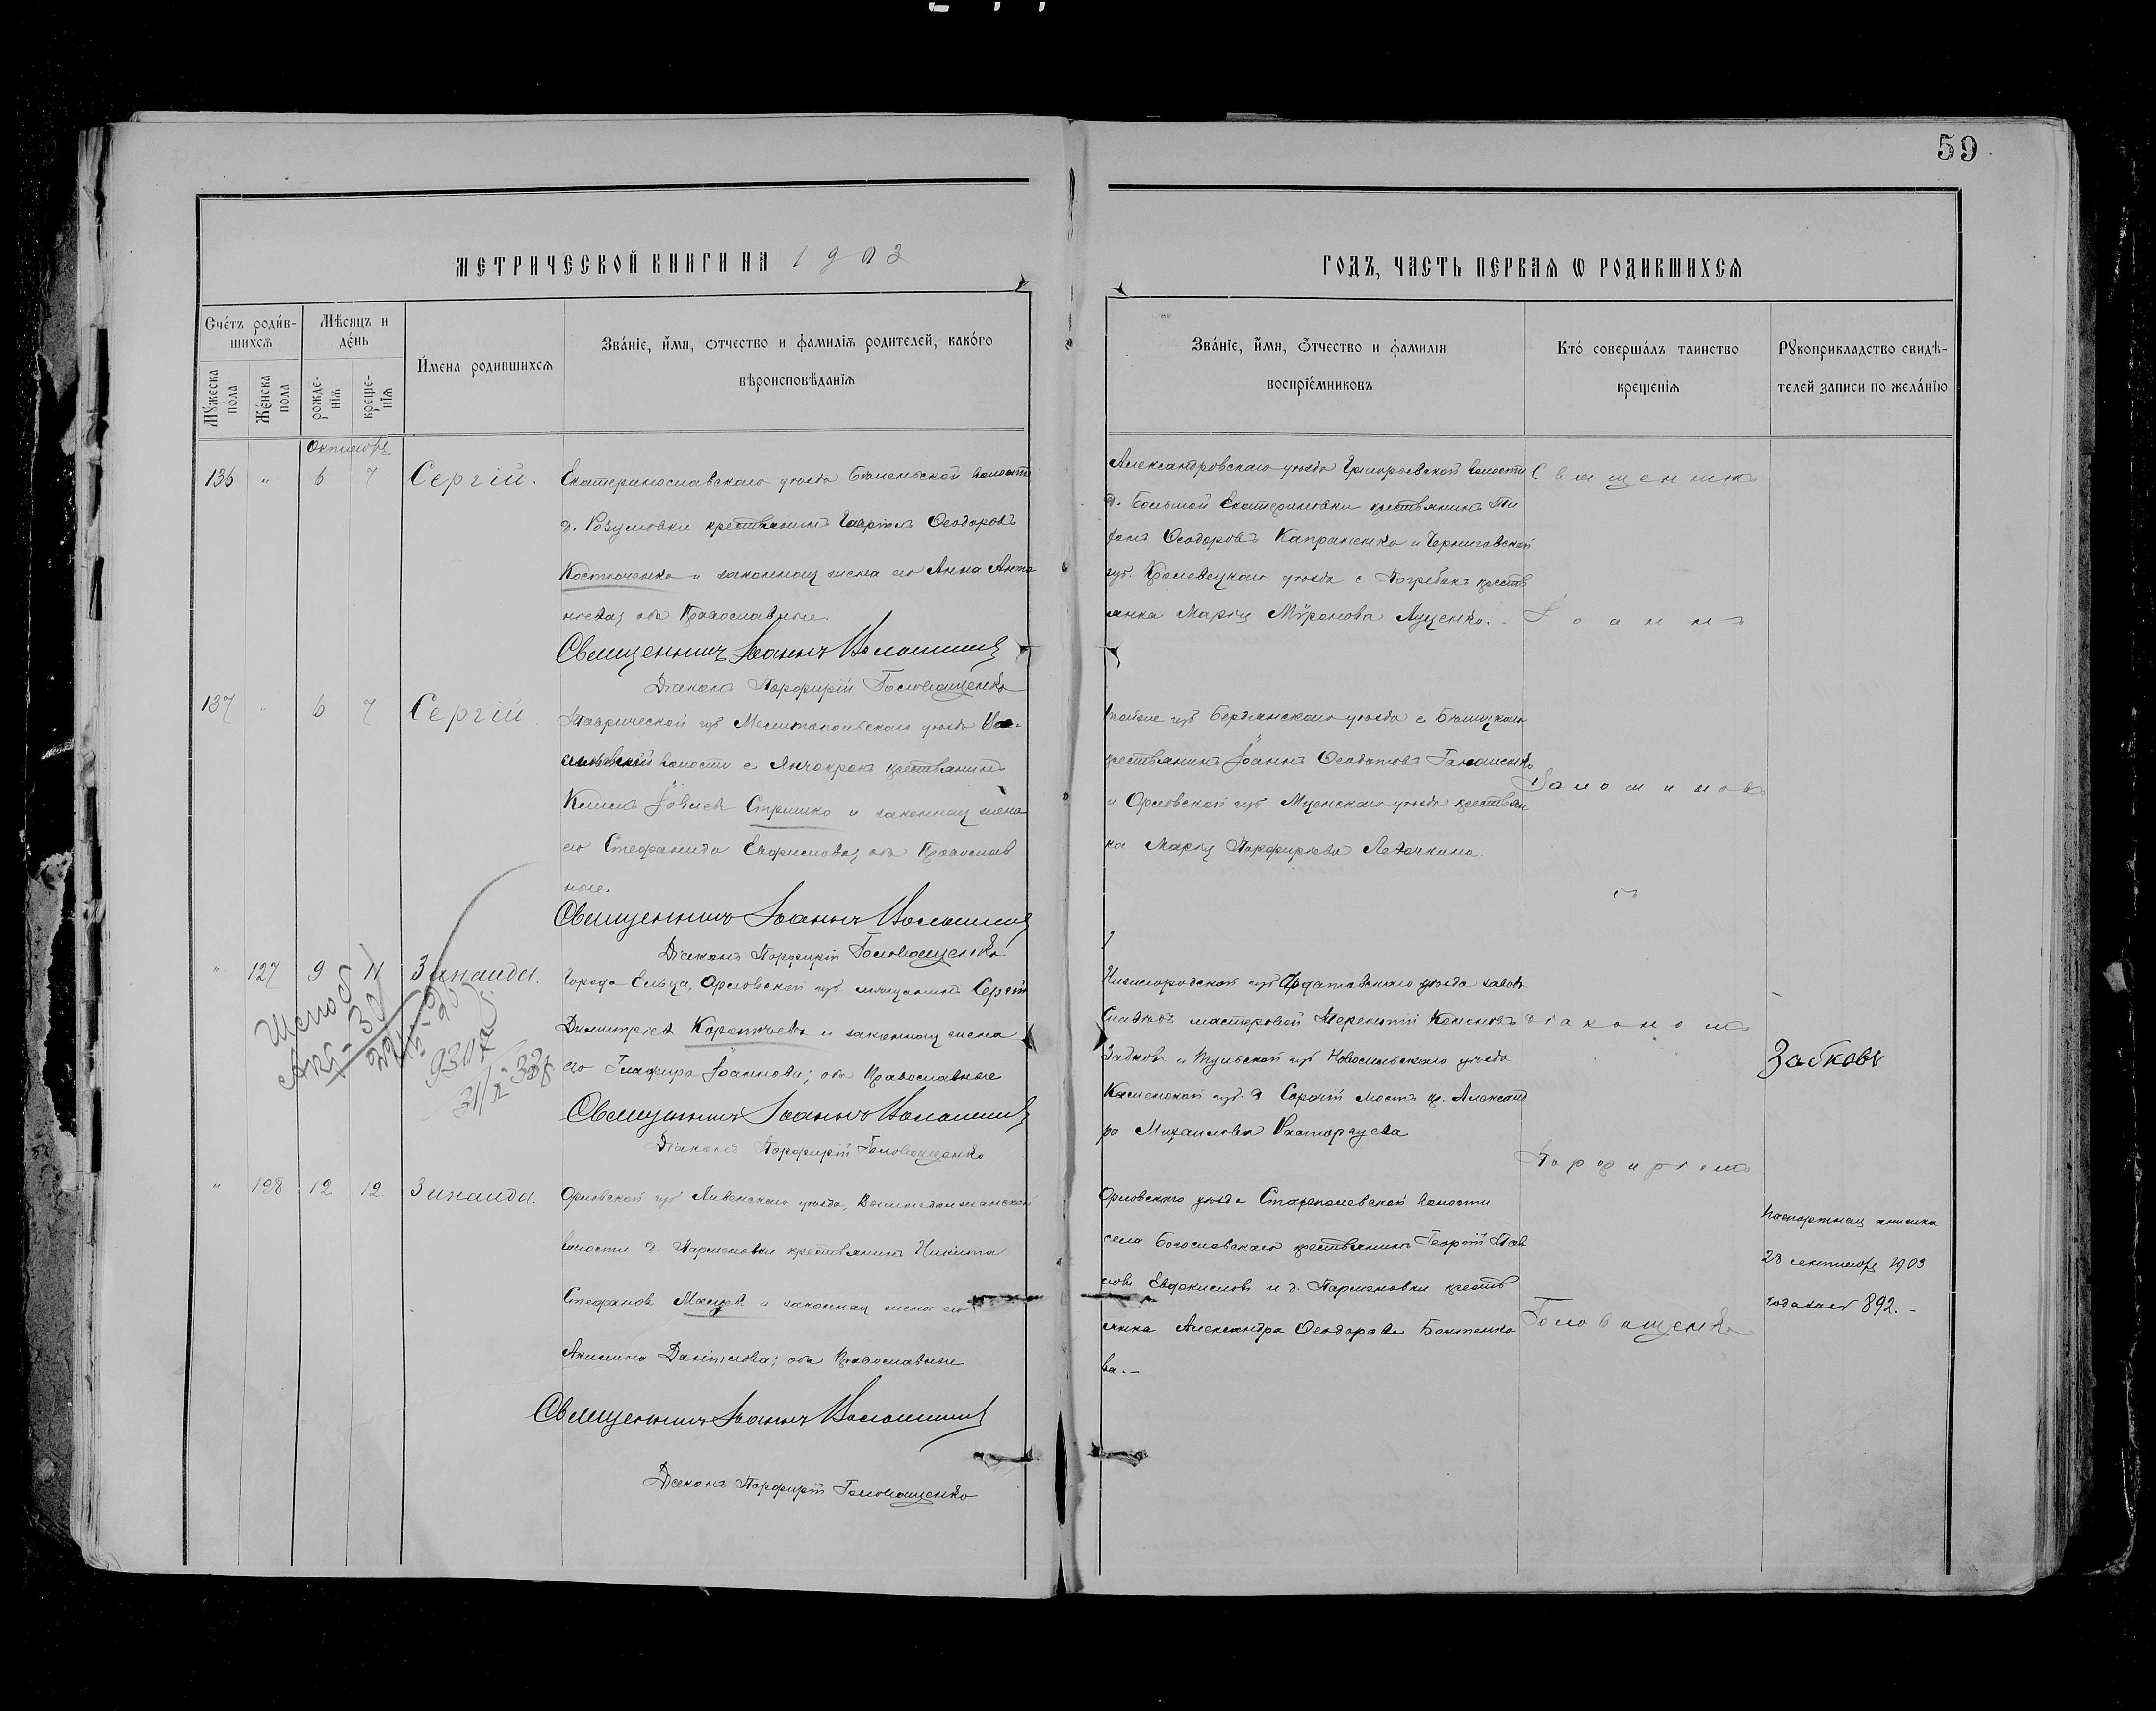 59
МЕТРИЧЕСКОЙ КНИГИ НА 1903
ГОДЪ, ЧАСТЬ ПЕРВАѦ Ѡ РОДИВШИХСѦ
Счéтъ роди́в-
шихсѧ
Мꙋ́жеска
по́ла
Же́нска
пола
Мѣ́сяцъ и
дéнь
рожде-
нїѧ
креще-
нїѧ
И́мена родившихсѧ
Зва́нїе, и́мѧ, ѻ́тчество и фамилїѧ родителей, како́го
вѣроисповѣ́данїѧ
Зва́нїе, и́мѧ, ѻ́тчество и фамилїѧ
воспрїе́мниковъ
Кто́ соверша́лъ таинство
крещенїѧ
Рꙋкоприкладство свидѣ-
телей записи по жела́нїю
Октября
136 " 6 7 Сергій.
Екатеринославскаго уѣзда Бѣленьской волости
д. Розумовки крестьянинъ Гавріилъ Ѳеодоровъ
Костюченко и законная жена его Анна Анто
ньева; оба Православные.
Священникъ Іоаннъ Волошинов
Діаконъ Порфирій Головащенко
Александровскаго уѣзда Григорьевской волости
д. Большой Екатериновки крестьянинъ Ти
фонъ Ѳеодоровъ Капраненко и Черниговской
губ. Кролевецкаго уѣзда с Погребокъ крестъ
янка Марія Мѵронова Луценко. -
137 " 6 7 Сергій.
Таврической губ Мелитопольскаго уѣзда Ва-
сильевской волости с Янчокракъ крестьянинъ
Климъ Іовлев Стришко и законная жена
его Стефанида Евфимова; оба Православ
ные.
Священникъ Іоаннъ Волошинов
Діаконъ Порфирій Головащенко
губ Бердянскаго уѣзда с
крестьянинъ Іоаннъ Ѳеодотовъ
и Орловской губ Мценскаго уѣзда крестьян
ка Марія Порфирьева
" 127 9 11 Зинаида.
Города Ельца, Орловской губ. мѣщанинъ Сергій
Димитріев Коротчевъ и законная жена
его Глафира Іоаннова; оба Православные
Священникъ Іоаннъ Волошинов
Діаконъ Порфирій Головащенко
Нижегородской губ Ардатовскаго уѣзда завода
мастеровой Терентій Кононовъ
Забковъ и Тульской губ Новосильскаго уѣзда
Каменской губ. д мостъ кр. Александ
ра Михаилова Расторгуева
Забковъ
" 128 12 12. Зинаида.
Орловской губ Ливенскаго уѣзда,
волости д. Парменовки крестьянинъ Никита
Стефановъ и законная жена его
Акилина Даніилова; оба Православные
Священникъ Іоаннъ Волошинов
Діаконъ Порфирій Головащенко
Орловскаго уѣзда волости
села Богословскаго крестьянинъ Георгій Пав
ловъ Евдокимовъ и д. Парменовки крестъ
янка Александра Ѳеодорова Болтенко
ва. -
Паспортная книжка
28 сентября 1903
года за № 892. -
Священникъ
Іоаннъ
Волошиновъ
съ
діакономъ
Порфиріемъ
Головащенко